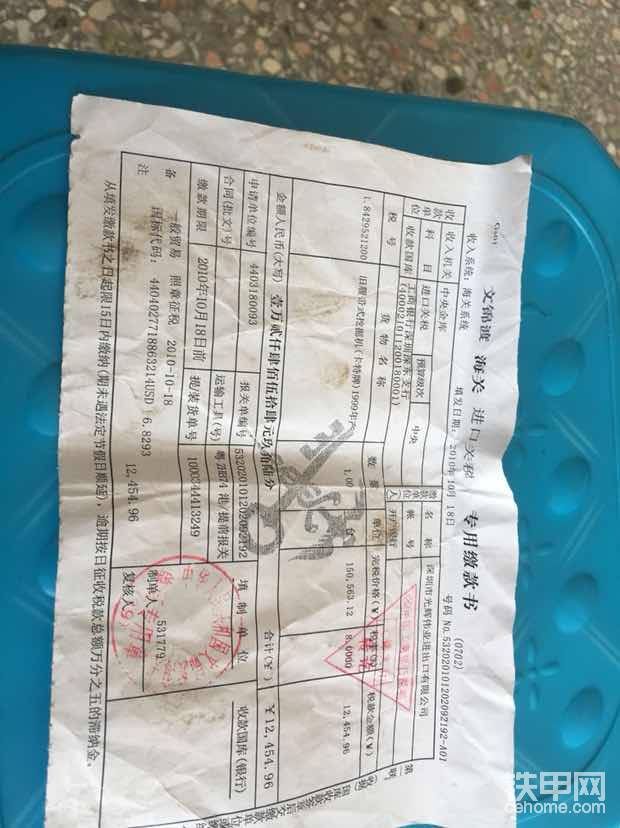 文锦渡 海关 进口关税 专用缴款书
(0702)
收入系统：海关系统
填发日期：2010年10月18日
号码 No.532020101202092192-A01
收款单位
收入机关 中央金库
科目 进口关税 预算级次 中央
收款国库 工商银行深圳深东支行
缴款单位(人)
名称 深圳市光辉伟业进出口有限公司
账号
开户银行
税号 货物名称 数量 单位 完税价格(¥) 税率(%) 税款金额(¥)
1.8429521200 旧履带式挖掘机(卡特牌)1999年产 1.00 台 150,563.12 8.0000 12,454.96
金额人民币(大写) 壹万贰仟肆佰伍拾肆元玖角陆分
合计(¥) ¥12,454.96
申请单位编号 4403180093
报关单编号 532020101202092192
填制单位
收款国库(银行)
合同(批文)号
运输工具(号)
缴款期限 2010年10月18日前
提/装货单号 1003444413249
备注
一般贸易 照章征税 2010-10-18
国标代码：4404027718863214USD 6.8293
12,454.96
制单人 531779
复核人
从填发缴款书之日起限15日内缴纳(期末遇法定节假日顺延)，逾期按日征收税款总额万分之五的滞纳金。
铁甲网